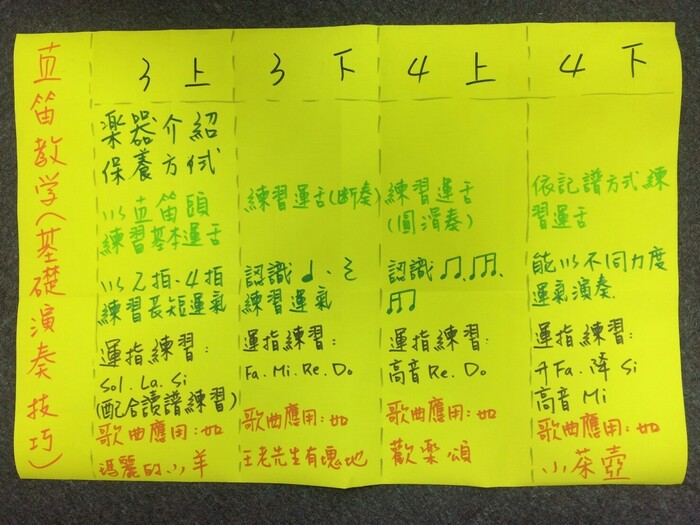 直笛教学(基礎演奏技巧)
3上
樂器介紹
保養方式
以直笛頭
練習基本運舌
以2拍、4拍
練習長短運氣
運指練習:
Sol.La.Si
(配合讀譜練習)
歌曲應用:如
瑪麗的小羊
3下
練習運舌(断奏)
認識♩、𝄽
練習運氣
運指練習:
Fa.Mi.Re.Do
歌曲應用:如
王老先生有塊地
4上
練習運舌
(圓滑奏)
認識
運指練習:
高音Re.Do
歌曲應用:如
歡樂頌
4下
依記譜方式練
習運舌
能以不同力度
運氣演奏.
運指練習:
升Fa.降Si
高音Mi
歌曲應用:如
小茶壺